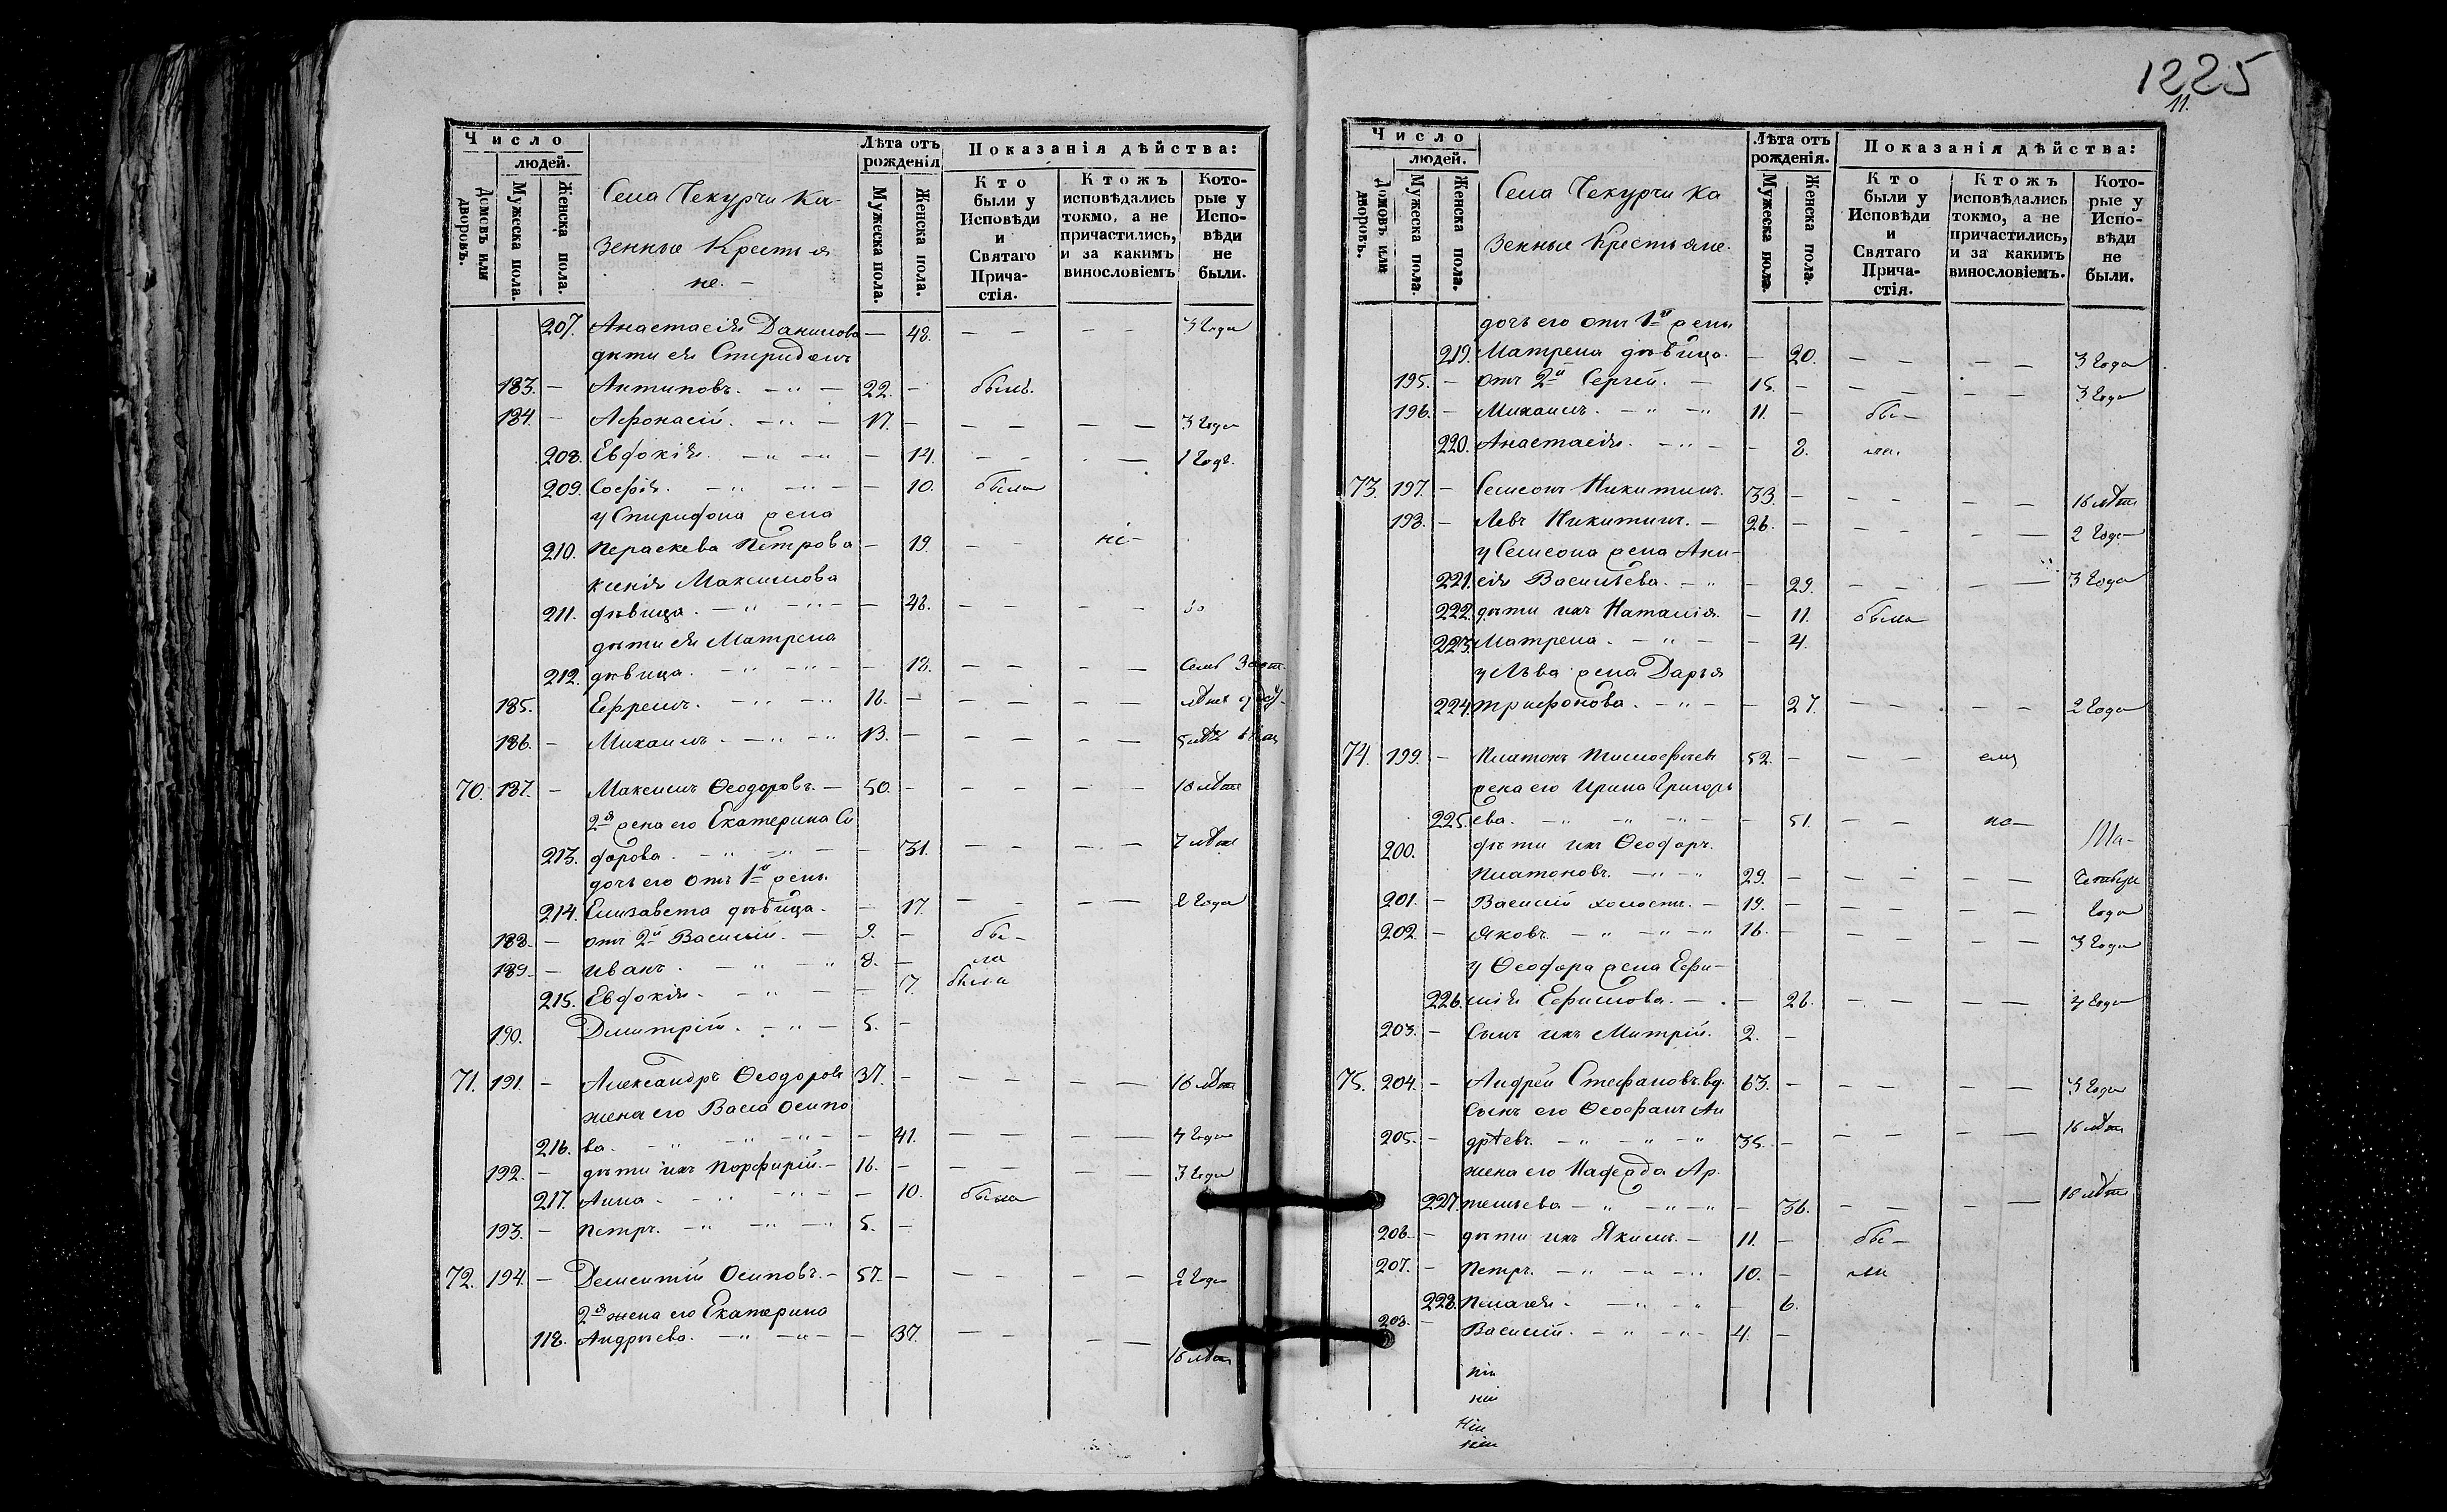 1225
11.
Число
людей.
Домовъ или дворовъ.
Мужеска пола.
Женска пола.
Села Чекурчи Ка-
зенные Крестья
не. –
Лѣта отъ рожденія
Мужеска пола.
Женска пола.
Показанія дѣйства:
Кто были у Исповѣди и Святаго Прича-стія.
Ктожъ исповѣдались токмо, а не причастились, и за какимъ винословіемъ
Кото-рые у Испо-вѣди не были.
207. Анастасія Данилова – 48. – – – – 3 года
дѣти ея Спиридонъ
183. – Антиповъ. – „ – 22. – былъ.
184. – Афонасій. – „ – 17. – – – – – 3 года
208. Евдокія. – „ – „ – 14. – – – 1 годъ.
209. Софія. – „ – „ – – 10. была
у Спиридона жена
210. Пераскева Петрова – 19. – – не –
ксенія Максимова
211. дѣвица. – „ – „ – – 48. – – – –
дѣти ея Матрена
212. дѣвица. – „ – „ – – 18. – – – –
185. Ефремъ. – „ – „ 16. – – – – –
186. – Михаилъ. – „ – „ 13. – – – – –
70. 187. – Максимъ Ѳеодоровъ. – 50. – – – – – 10 лѣтъ
2я жена его Екатерина Си
213. дорова. – „ – „ – – 31. – – – – 7 лѣтъ
дочь его отъ 1й жены
214. Елизавета дѣвица. – 17. – – – – 2 года
188. – отъ 2й Василій. – 9. – бы –
189. – Иванъ. – „ – „ 8. – ла
215. Евдокія. – „ – – 7. была
190. Димитрій. – „ – 5. –
71. 191. – Александръ Ѳеодоровъ 37. – – – – – 16 лѣтъ
жена его Васса Осипо
216. ва. – „ – „ – „ – – 41. – – – – 4 года
192. – дѣти ихъ Порфирій. – 16. – – – – – 3 года
217. Анна. – „ – „ – – 10. была
193. – Петръ. – „ – „ – „ 5. –
72. 194. – Дементій Осиповъ. – 57. – – – – – 2 года
2я жена его Екатерина
118. Андрѣева. – „ – „ – – 37. – – – – 16 лѣтъ
Число
людей.
Домовъ или дворовъ.
Мужеска пола.
Женска пола.
Села Чекурчи Ка
зенные Крестьяне.
Лѣта отъ рожденія.
Мужеска пола.
Женска пола.
Показанія дѣйства:
Кто были у Исповѣди и Святаго Прича-стія.
Ктожъ исповѣдались токмо, а не причастились, и за какимъ винословіемъ.
Кото-рые у Испо-вѣди не были.
дочь его отъ 1й жены
219. Матрена дѣвица. – 20. – – – – 3 года
195. – отъ 2й Сергей. – 15. – – – – – 3 года
196. – Михаилъ. – „ – „ 11. – бы –
220. Анастасія. – „ – – 8. ла.
73. 197. – Семенъ Никитинъ. 33. – – – – – 16 лѣтъ
198. – Левъ Никитинъ. – 26. – – – – – 2 года
у Семена жена Ани-
221. сія Васильева. – „ – 29. – – – – 3 года
222. дѣти ихъ Наталія. – 11. была
223. Матрена. – „ – – 4.
у Льва жена Дарья
224. Трифонова. – „ – – 27. – – – – 2 года
74. 199. – Платонъ Тимофѣевъ 52. – – –
жена его Ирина Григорь
225. ева. – „ – „ – „ – – 51. – –
200. дѣти ихъ Ѳеодоръ
Платоновъ. – „ – „ 29. – – – – –
201. – Василій холостъ. – 19. – – – – – года
202. – Яковъ. – „ – „ – „ 16. – – – – – 3 года
у Ѳеодора жена Ефи-
226. мія Ефимова. – – 26. – – – – 4 года
203. – Сынъ ихъ Митрій. 2. –
75. 204. – Андрей Стефановъ вд. 63. – – – – – 3 года
Сынъ его Ѳеофанъ Ан
205. – дрѣевъ. – „ – „ – „ 35. – – – – – 16 лѣтъ
жена его Надежда Ар.
227. темьева – „ – „ – „ – 36. – – – – 18 лѣтъ
206. – дѣти ихъ Якимъ. – 11. – бы –
207. – Петръ. – „ – „ – „ 10. – ли
228. Пелагея. – „ – „ – 6.
208. – Василій. – „ – „ – 4. –